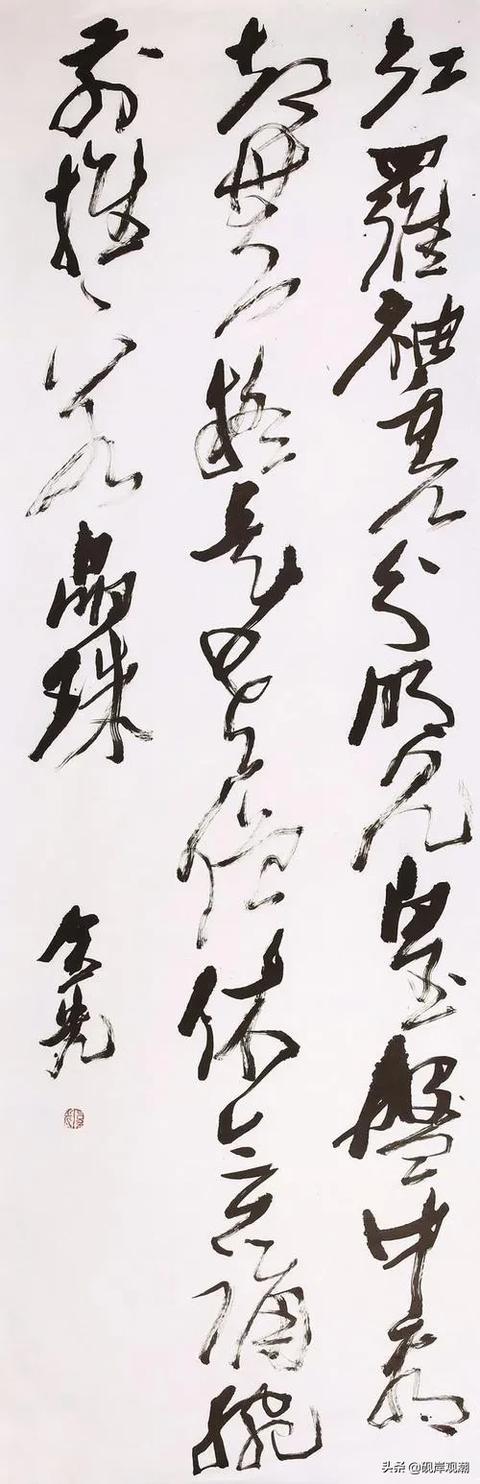 红羅袖裏分明见白玉盤中看
却無疑是老僧休念誦腕
前推下水晶珠
头条 @砚岸观潮